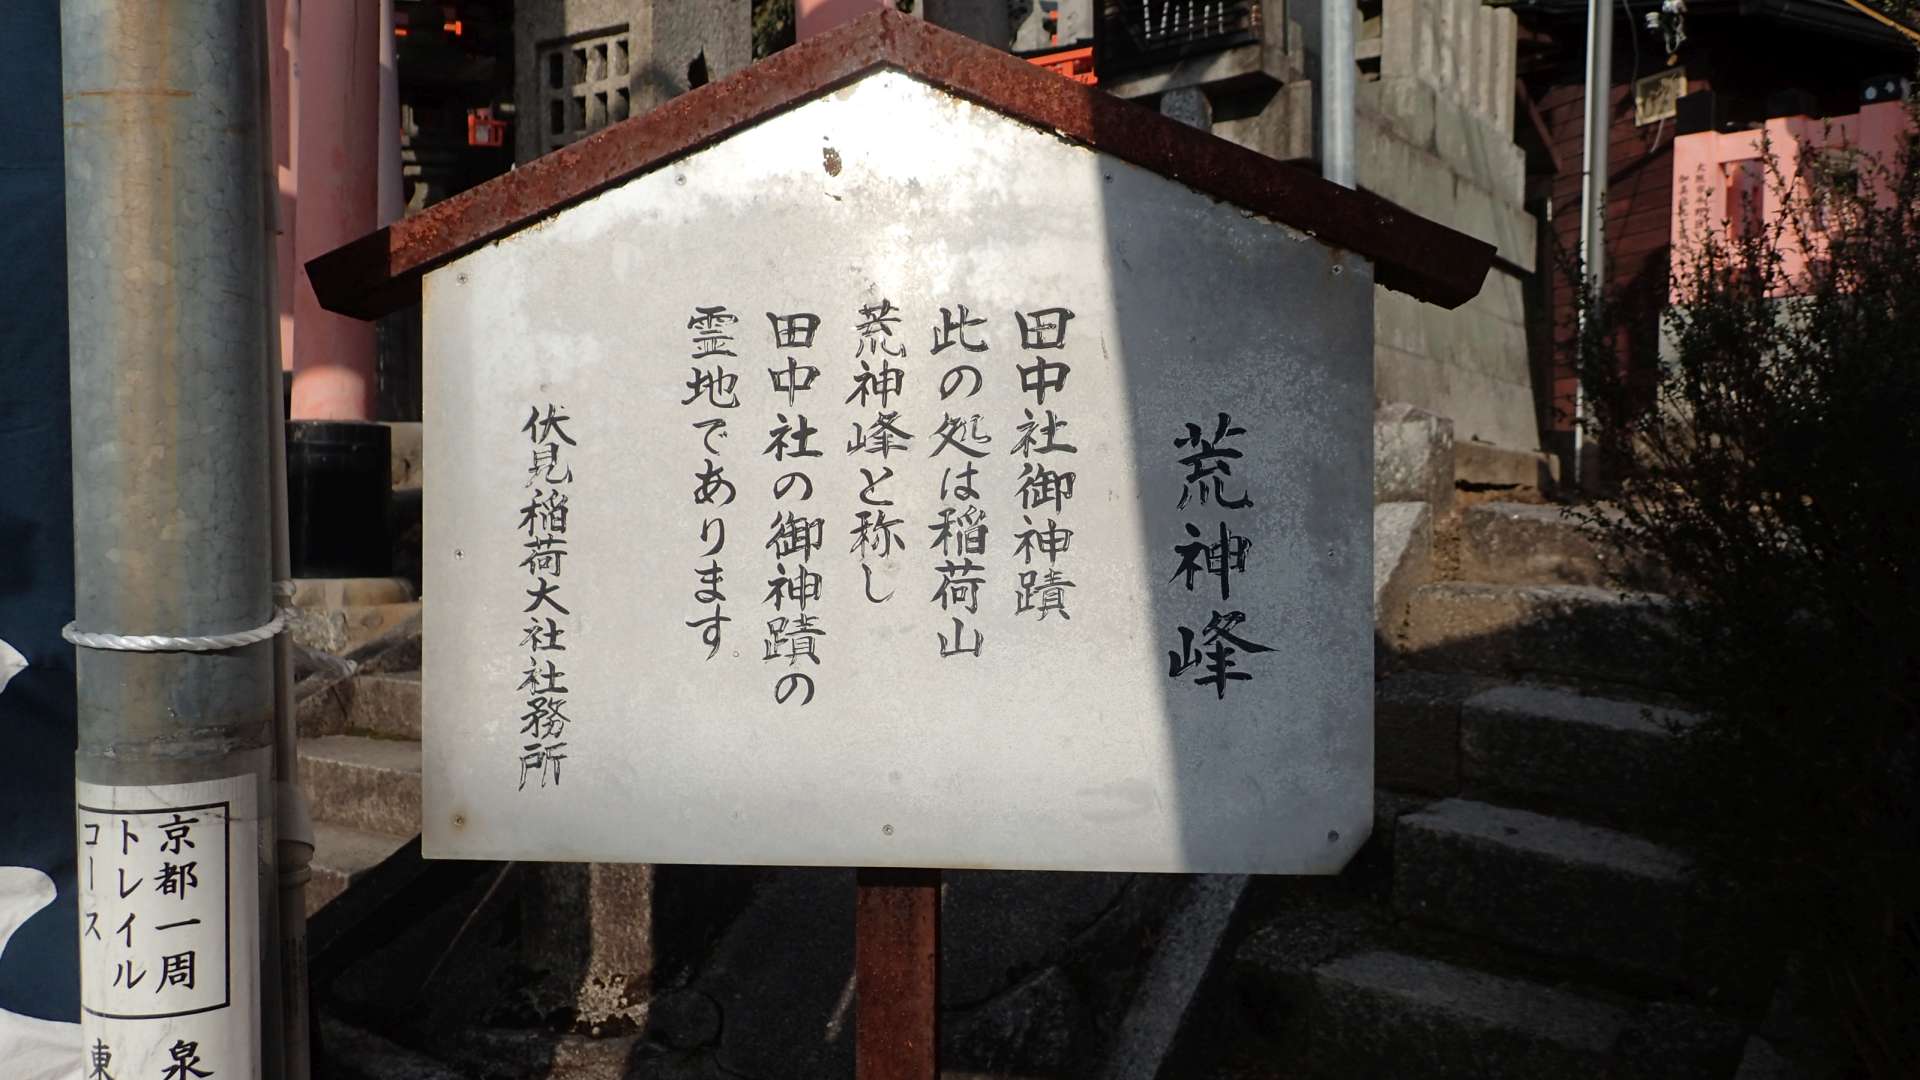 荒神峰
田中社御神蹟
此の処は稲荷山
荒神峰と称し
田中社の御神蹟の
霊地であります。
伏見稲荷大社社務所
京都一周
トレイル
コース
泉
東